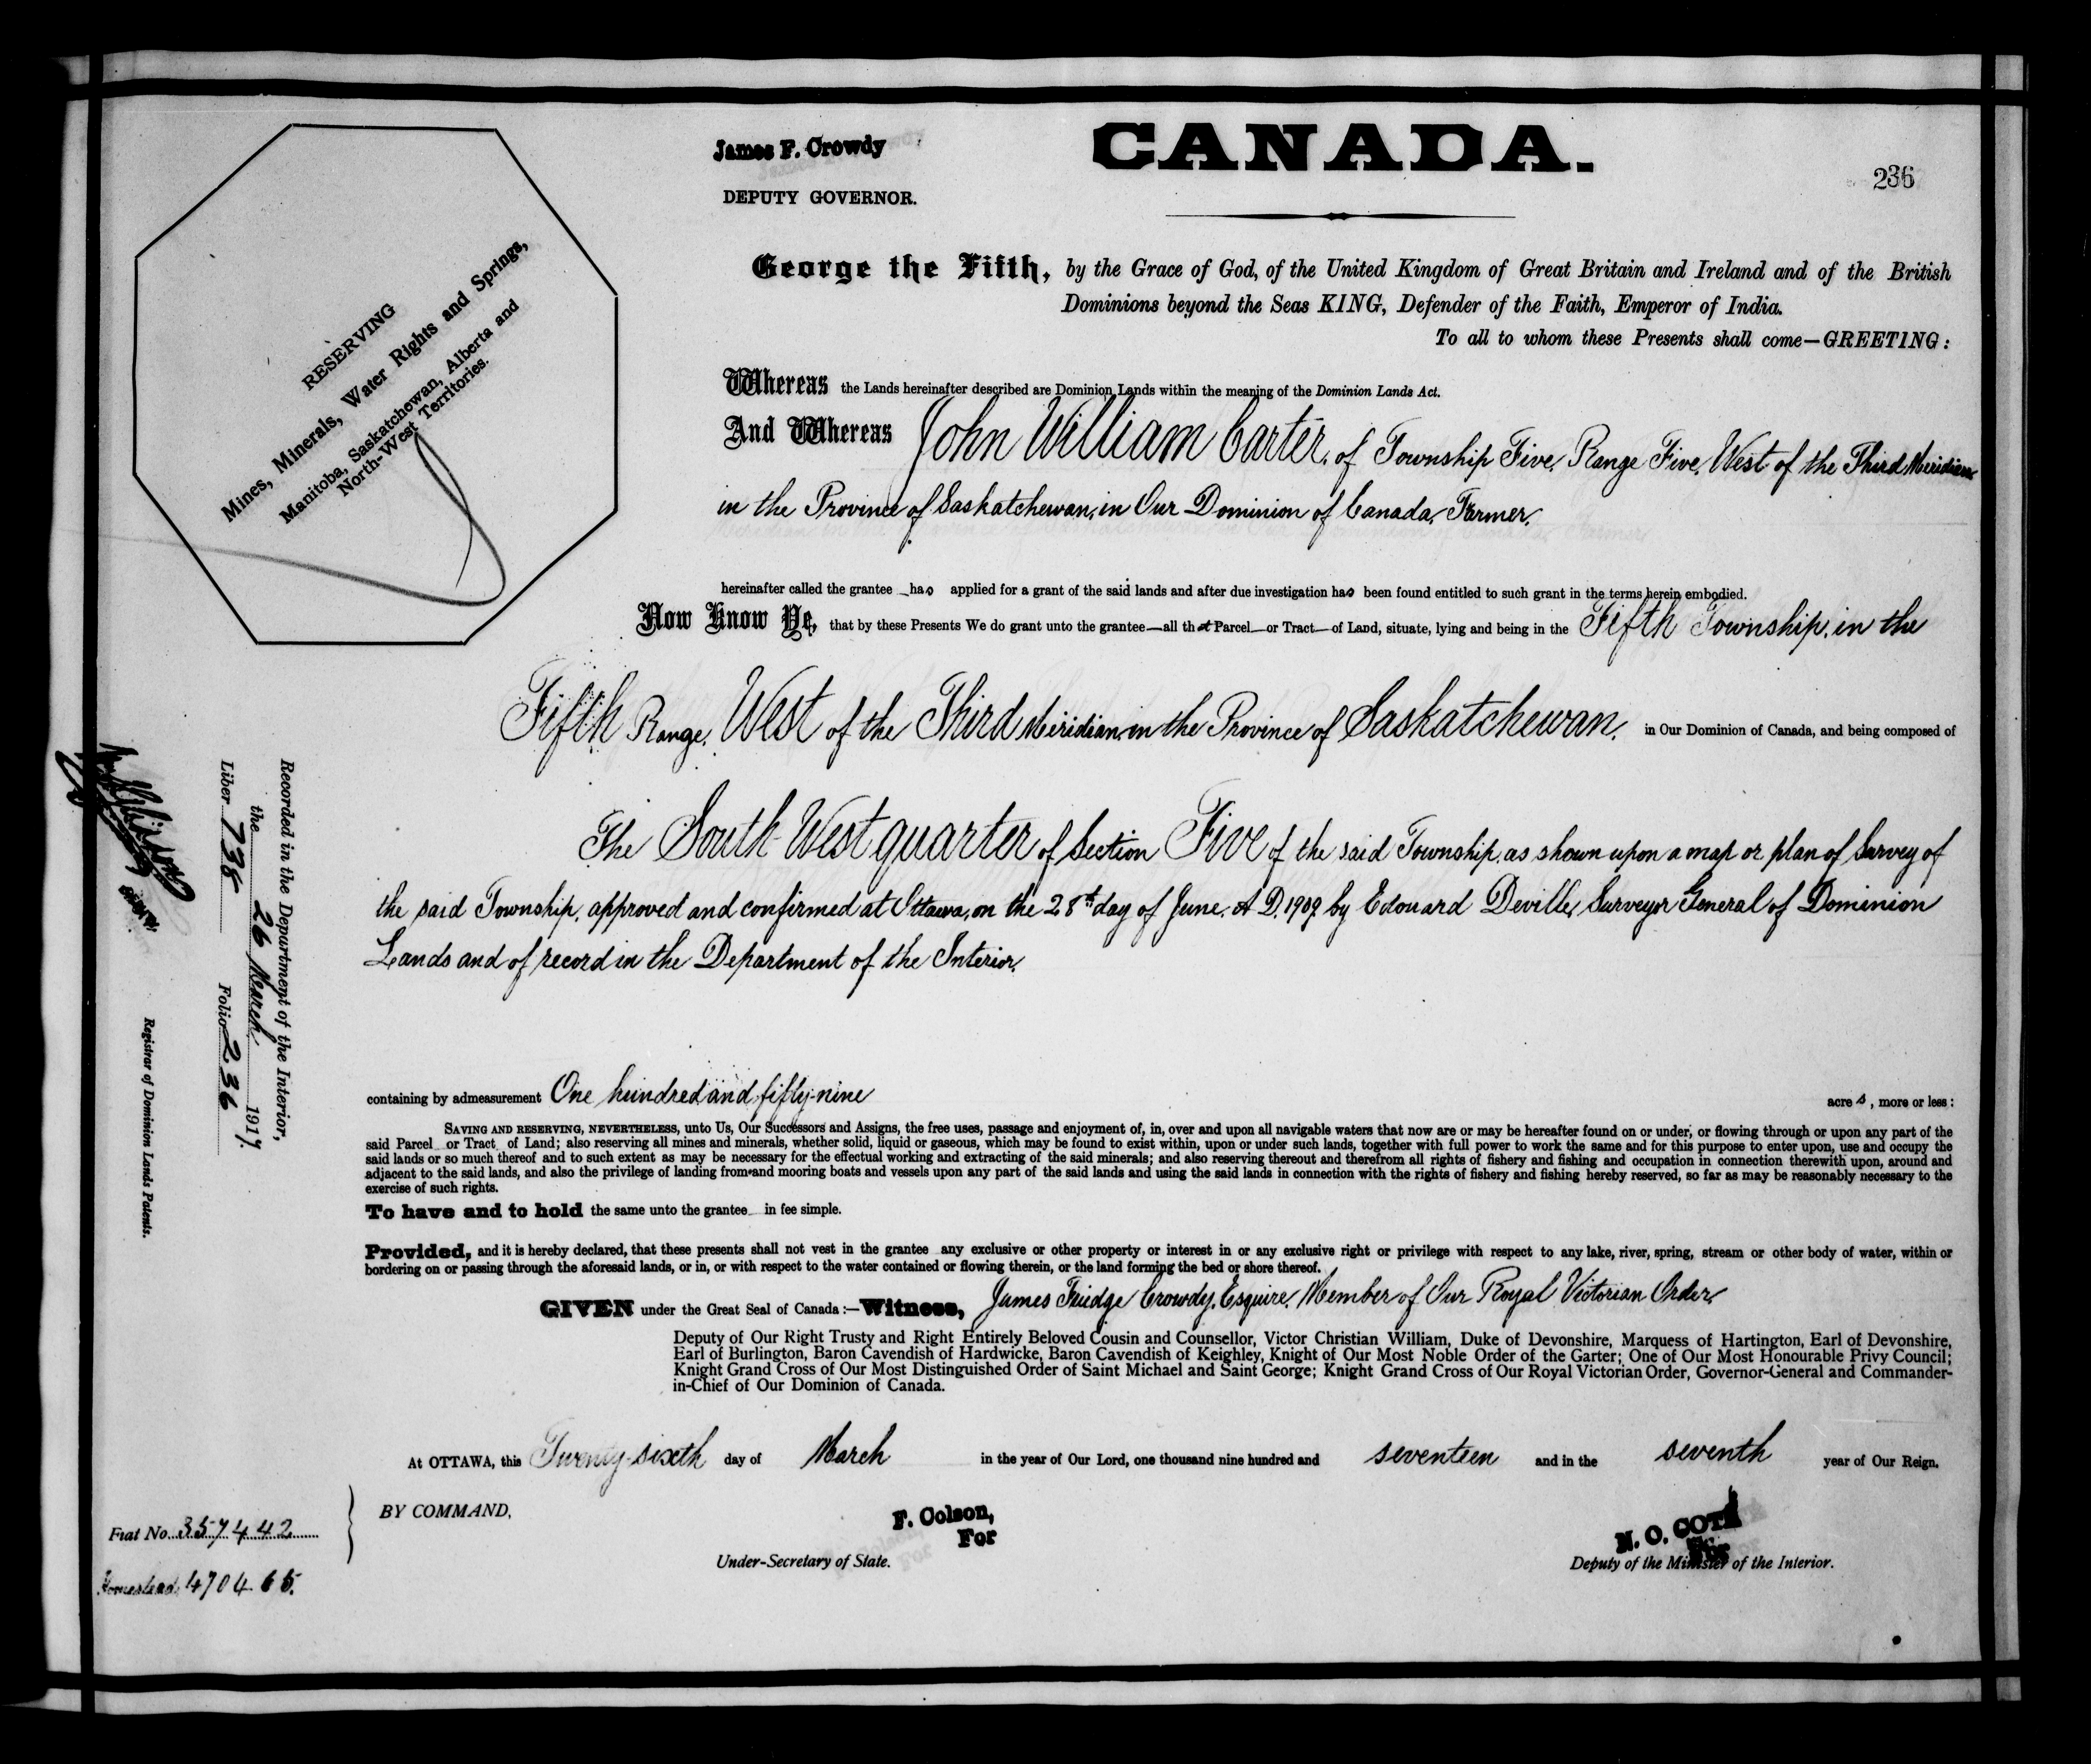 James F. Crowdy
DEPUTY GOVERNOR.
CANADA.
236
RESERVING
Mines, Minerals, Water Rights and Springs,
Manitoba, Saskatchewan, Alberta and
North-West Territories.
George the Fifth, by the Grace of God, of the United Kingdom of Great Britain and Ireland and of the British
Dominions beyond the Seas KING, Defender of the Faith, Emperor of India.
To all to whom these Presents shall come—GREETING:
Whereas the Lands hereinafter described are Dominion Lands within the meaning of the Dominion Lands Act.
And Whereas John William Carter, of Township Five, Range Five, West of the Third Meridian
in the Province of Saskatchewan, in Our Dominion of Canada, Farmer,
hereinafter called the grantee has applied for a grant of the said lands and after due investigation has been found entitled to such grant in the terms herein embodied.
Now Know Ye, that by these Presents We do grant unto the grantee—all that Parcel—or Tract—of Land, situate, lying and being in the Fifth Township, in the
Fifth Range, West of the Third Meridian, in the Province of Saskatchewan, in Our Dominion of Canada, and being composed of
The South West quarter of Section Five of the said Township, as shown upon a map or plan of Survey of
the said Township, approved and confirmed at Ottawa, on the 28th day of June, A.D. 1909 by Edouard Deville, Surveyor General of Dominion
Lands and of record in the Department of the Interior,
containing by admeasurement One hundred and fifty-nine acres, more or less:
SAVING AND RESERVING, NEVERTHELESS, unto Us, Our Successors and Assigns, the free uses, passage and enjoyment of, in, over and upon all navigable waters that now are or may be hereafter found on or under, or flowing through or upon any part of the
said Parcel or Tract of Land; also reserving all mines and minerals, whether solid, liquid or gaseous, which may be found to exist within, upon or under such lands, together with full power to work the same and for this purpose to enter upon, use and occupy the
said lands or so much thereof and to such extent as may be necessary for the effectual working and extracting of the said minerals; and also reserving thereout and therefrom all rights of fishery and fishing and occupation in connection therewith upon, around and
adjacent to the said lands, and also the privilege of landing from and mooring boats and vessels upon any part of the said lands and using the said lands in connection with the rights of fishery and fishing hereby reserved, so far as may be reasonably necessary to the
exercise of such rights.
To have and to hold the same unto the grantee in fee simple.
Provided, and it is hereby declared, that these presents shall not vest in the grantee any exclusive or other property or interest in or any exclusive right or privilege with respect to any lake, river, spring, stream or other body of water, within or
bordering on or passing through the aforesaid lands, or in, or with respect to the water contained or flowing therein, or the land forming the bed or shore thereof.
GIVEN under the Great Seal of Canada:—Witness, James Fuidge Crowdy, Esquire, Member of Our Royal Victorian Order,
Deputy of Our Right Trusty and Right Entirely Beloved Cousin and Counsellor, Victor Christian William, Duke of Devonshire, Marquess of Hartington, Earl of Devonshire,
Earl of Burlington, Baron Cavendish of Hardwicke, Baron Cavendish of Keighley, Knight of Our Most Noble Order of the Garter; One of Our Most Honourable Privy Council;
Knight Grand Cross of Our Most Distinguished Order of Saint Michael and Saint George; Knight Grand Cross of Our Royal Victorian Order, Governor-General and Commander-
in-Chief of Our Dominion of Canada.
At OTTAWA, this Twenty-sixth day of March in the year of Our Lord, one thousand nine hundred and seventeen and in the seventh year of Our Reign.
BY COMMAND,
F. Colson,
For
Under-Secretary of State.
N. O. COTE
For
Deputy of the Minister of the Interior.
Fiat No. 357442
Homestead, 470465.
Recorded in the Department of the Interior,
the 26 March 1917.
Liber 738 Folio 236
Registrar of Dominion Lands Patents.